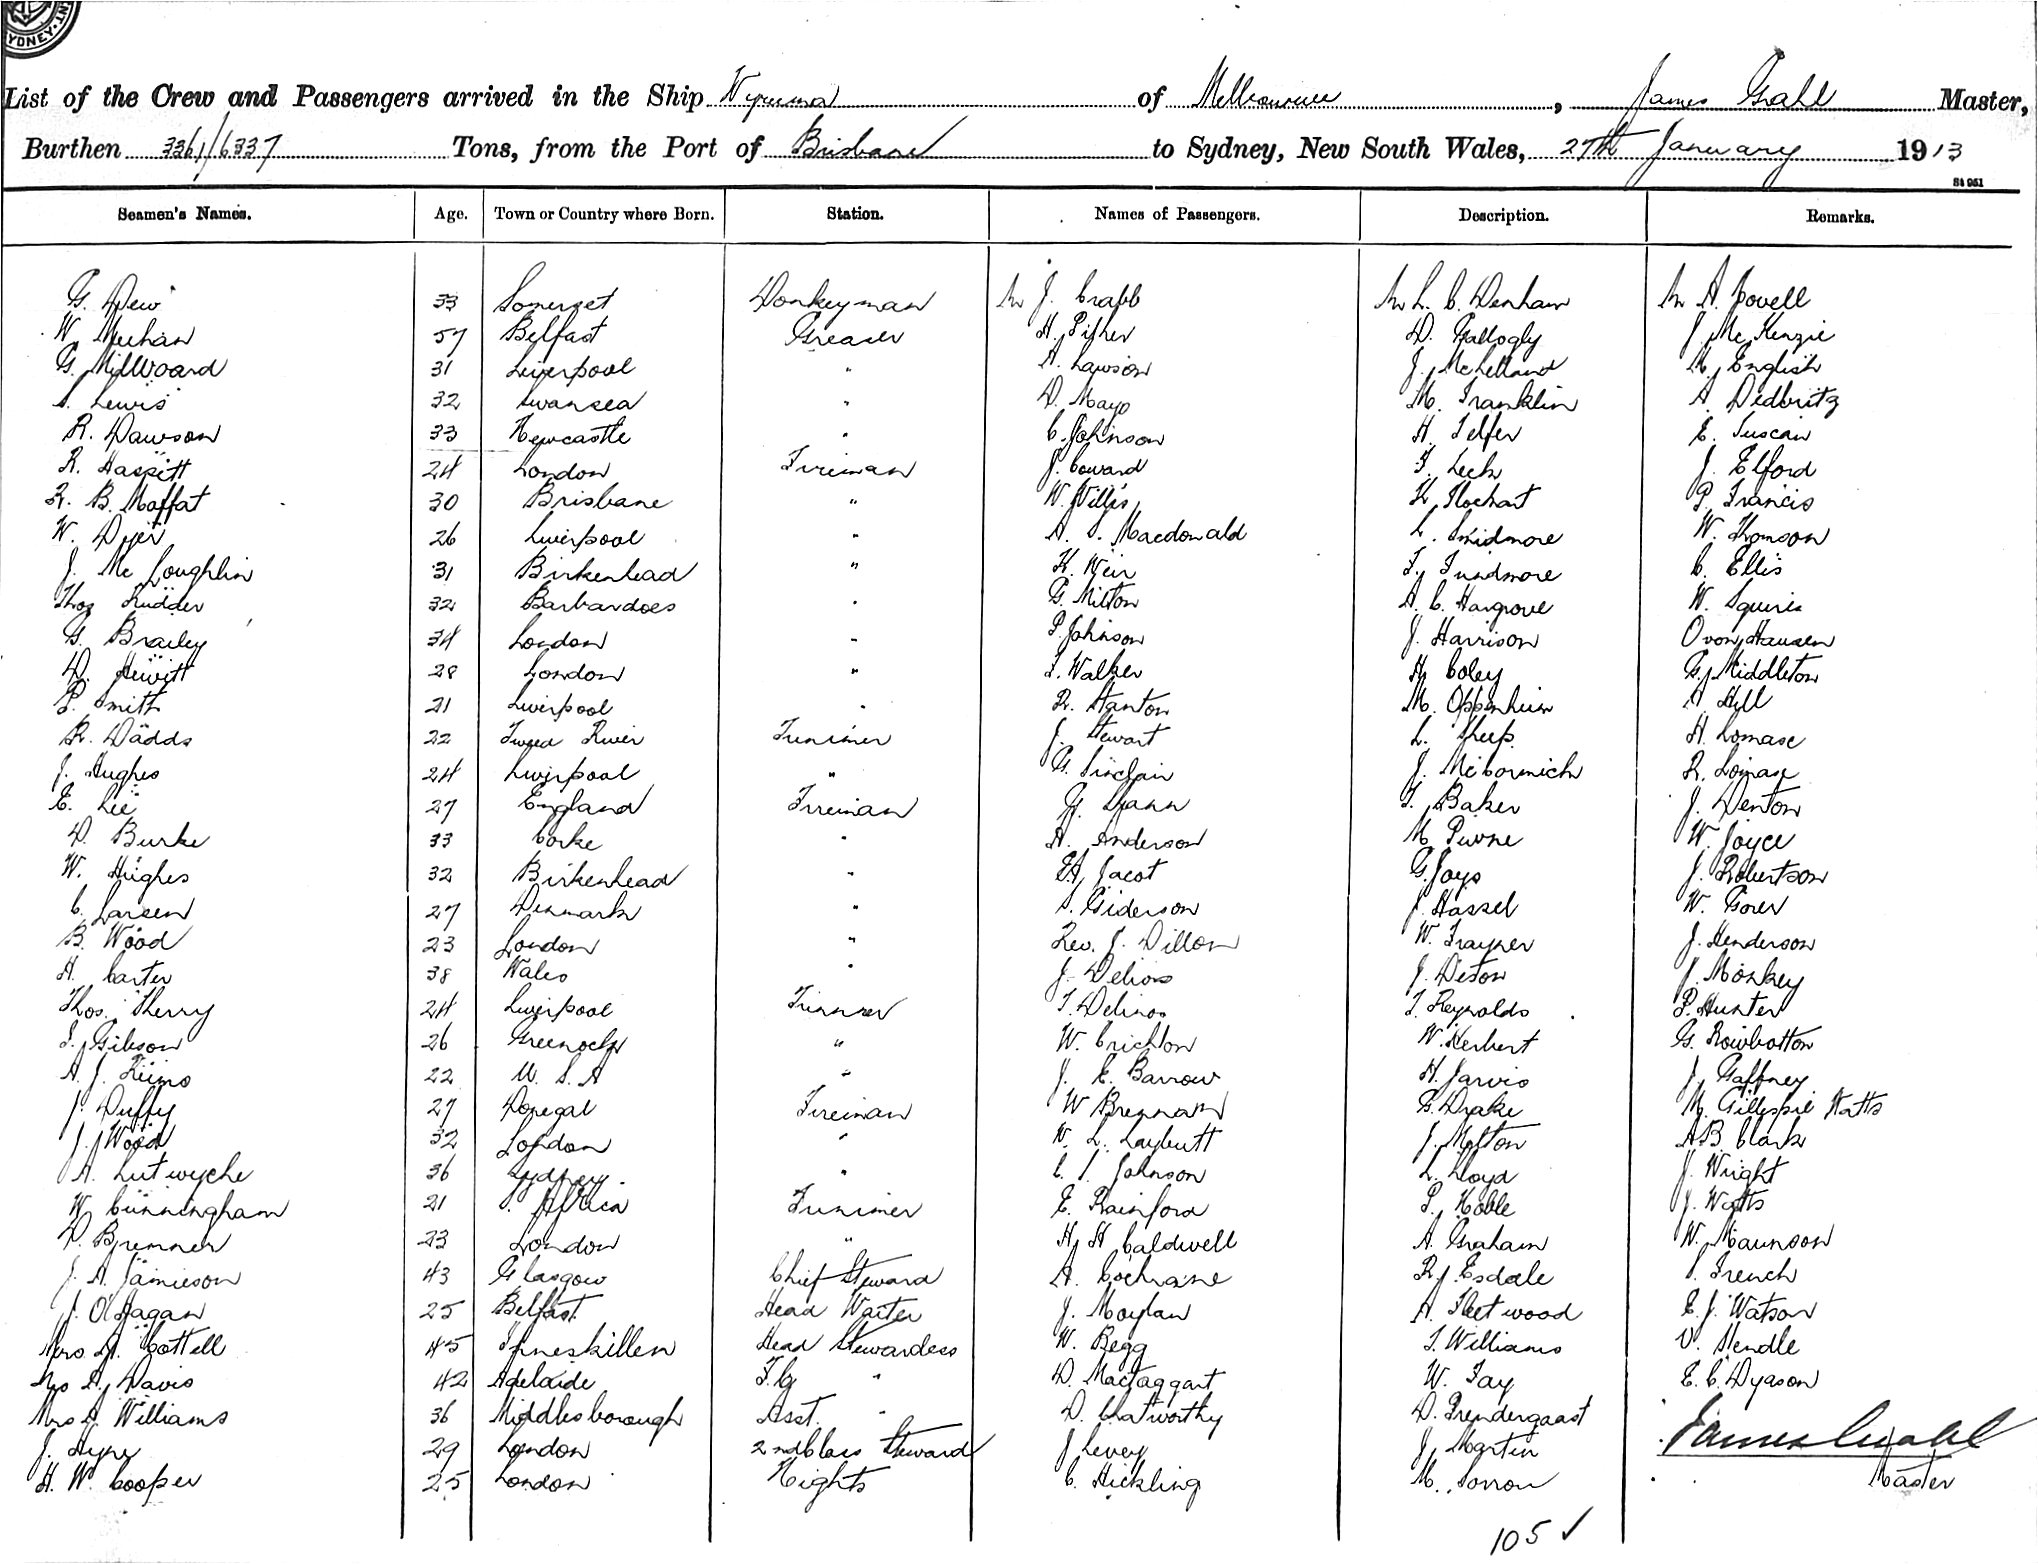 YDNEY.
List of the Crew and Passengers arrived in the Ship Wyreema of Melbourne, James Grahl Master,
Burthen 3361/6337 Tons, from the Port of Brisbane to Sydney, New South Wales, 27th January 1913
St 951
Seamen's Names. Age. Town or Country where Born. Station. Names of Passengers. Description. Remarks.
G. Dew 33 Somerset Donkeyman Mr J. Crabb Mr L. C. Denham Mr A. Covell
W. Meehan 57 Belfast Greaser H. Fisher D. Gallogly J. McKenzie
G. Millward 31 Liverpool " A. Lawson J. McLelland M. English
S. Lewis 32 Swansea " D. Mayo M. Franklin A. Dedbritz
R. Dawson 33 Newcastle " C. Johnson H. Telfer E. Tuscain
R. Haskitt 24 London Fireman J. Coward F. Leck J. Elford
R. B. Moffat 30 Brisbane " W. Willis K. P. Francis
W. Dyer 26 Liverpool " A. S. Macdonald L. Skidmore W. Thomson
J. Mc Loughlin 31 Birkenhead " K. Weir F. C. Ellis
Thos Rudder 32 Barbardoes " G. Milton A. C. Hargrove W. Squires
G. Brailey 34 London " P. Johnson J. Harrison O von Hausen
D. Hewitt 28 London " F. Walker H. Coley G. Middleton
P. Smith 21 Liverpool " R. Stanton M. Oppenheim A Hill
R. Dadds 22 Tweed River Trimmer J. Stewart L. Sheep H. Lomase
J. Hughes 24 Liverpool " G. Sinclair J. McCormick R. Lomase
E. Lee 27 England Fireman G. Dann T. Baker J. Denton
D. Burke 33 Corke " A. Anderson M. Purne W. Joyce
W. Hughes 32 Birkenhead " F.A. Jacot G. Joys J. Robertson
C. Larsen 27 Denmark " S. Giderson J. Hassel W. Gorer
B. Wood 23 London " Rev. J. Dillon W. Trayner J. Henderson
H. Carter 38 Wales " J. Delios J. Deton J. Monkey
Thos. Sherry 24 Liverpool Trimmer T. Delinos T. Reynolds P. Hunter
J. Gibson 26 Greenock " W. Crichton W. Herbert G. Rowbotton
A. J. 22 U. S. A " J. E. Barrow H. Jarvis J. Gaffney
J. Duffy 27 Donegal Fireman W Brennan G. Drake M. Gillespie Watts
J. Wood 32 London " W. L. Laybutt J. Melton A.B. Clark
A. Lutwyche 36 Sydney " C. I. Johnson L. Lloyd J. Wright
W. Cunningham 21 S. Africa Trimmer E. Rainford P. Noble J. Watts
D. Bremner 23 London " H. H Caldwell A. Graham W. Maunson
J. A. Jamieson 43 Glasgow Chief Steward A. Cochrane R. J. Esdale S. French
J. O'Hagan 25 Belfast Head Waiter J. Moylan A. Fleetwood E. J. Watson
Mrs. M. Cottell 45 Inneskillen Head Stewardess W. Begg T. Williams V. Hendle
Mrs A. Davis 42 Adelaide F.C. " D. Mactaggart W. Fay E. C. Dyason
Mrs A. Williams 36 Middlesborough Asst. " D. Chatworthy D. Prendergaast
J. Hyne 29 London 2nd Class Steward J Levey J. Martin James Grahl
H. W. Cooper 25 London Nights C. Hickling M. Sorrow Master
105 ✓